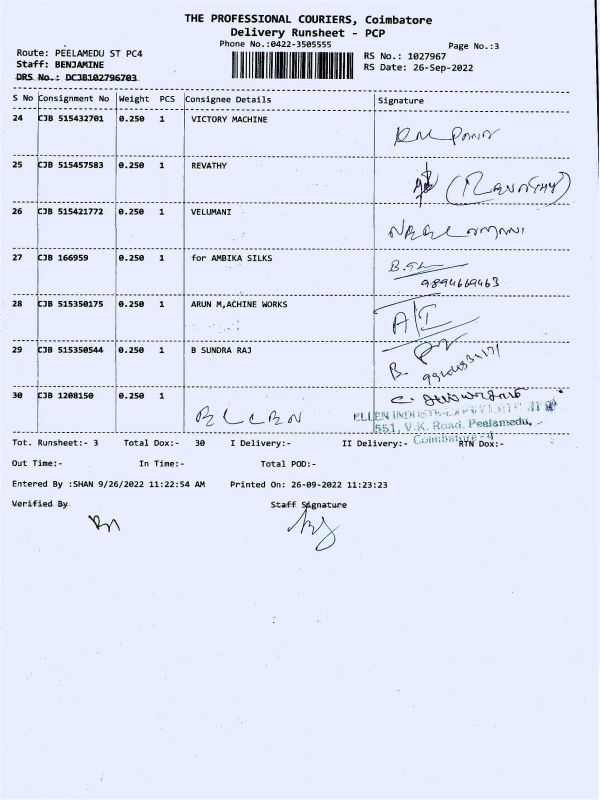 THE PROFESSIONAL COURIERS, Coimbatore
Delivery Runsheet - PCP
Phone No.:0422-3505555
Page No.:3
Route: PEELAMEDU ST PC4
RS No.: 1027967
Staff: BENJAMINE
RS Date: 26-Sep-2022
DRS No.: DCJB102796703
S No Consignment No Weight PCS Consignee Details Signature
24 CJB 515432701 0.250 1 VICTORY MACHINE
25 CJB 515457583 0.250 1 REVATHY (REVATHY)
26 CJB 515421772 0.250 1 VELUMANI
27 CJB 166959 0.250 1 for AMBIKA SILKS
9894669463
28 CJB 515350175 0.250 1 ARUN M,ACHINE WORKS
29 CJB 515350544 0.250 1 B SUNDRA RAJ B.
30 CJB 1208150 0.250 1
551, V.K. Road, Peelamedu,
Coimbatore-4
Tot. Runsheet:- 3 Total Dox:- 30 I Delivery:- II Delivery:- RTN Dox:-
Out Time:- In Time:- Total POD:-
Entered By :SHAN 9/26/2022 11:22:54 AM Printed On: 26-09-2022 11:23:23
Verified By Staff Signature